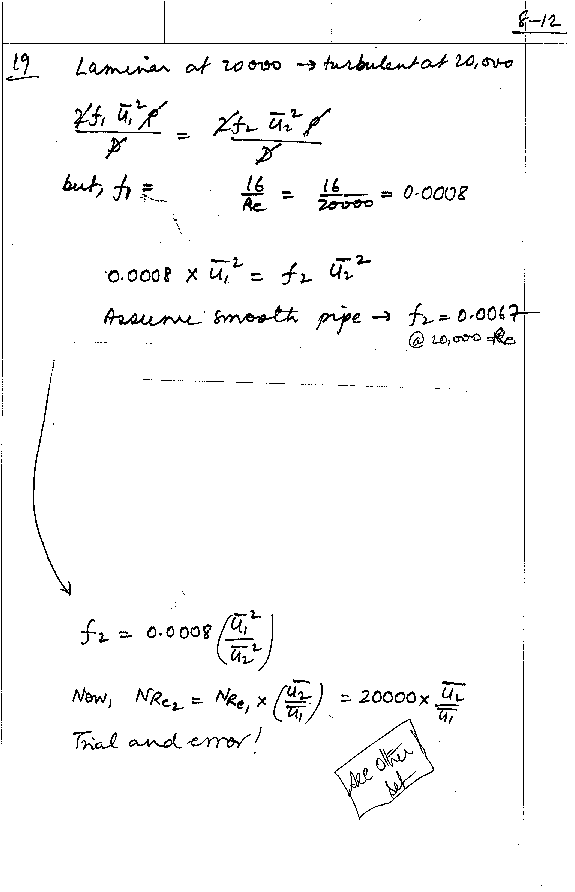 8-12
19 Laminar at 20000 → turbulent at 20,000
2f₁ ū₁² ρ / D = 2f₂ ū₂² ρ / D
but, f₁ = 16/Re = 16/20000 = 0.0008
0.0008 × ū₁² = f₂ ū₂²
Assume smooth pipe → f₂ = 0.0067
@ 20,000 Re
f₂ = 0.0008 (ū₁²/ū₂²)
Now, NRe₂ = NRe₁ × (ū₂/ū₁) = 20000 × ū₂/ū₁
Trial and error!
see other
set